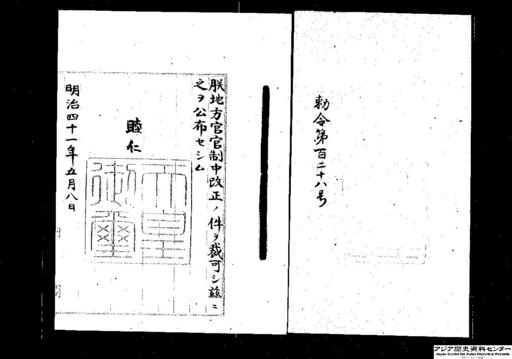 勅令第百二十八号
朕地方官官制中改正ノ件ヲ裁可シ茲ニ
之ヲ公布セシム
睦仁
天皇御璽
明治四十一年五月八日
アジア歴史資料センター
Japan Center for Asian Historical Records